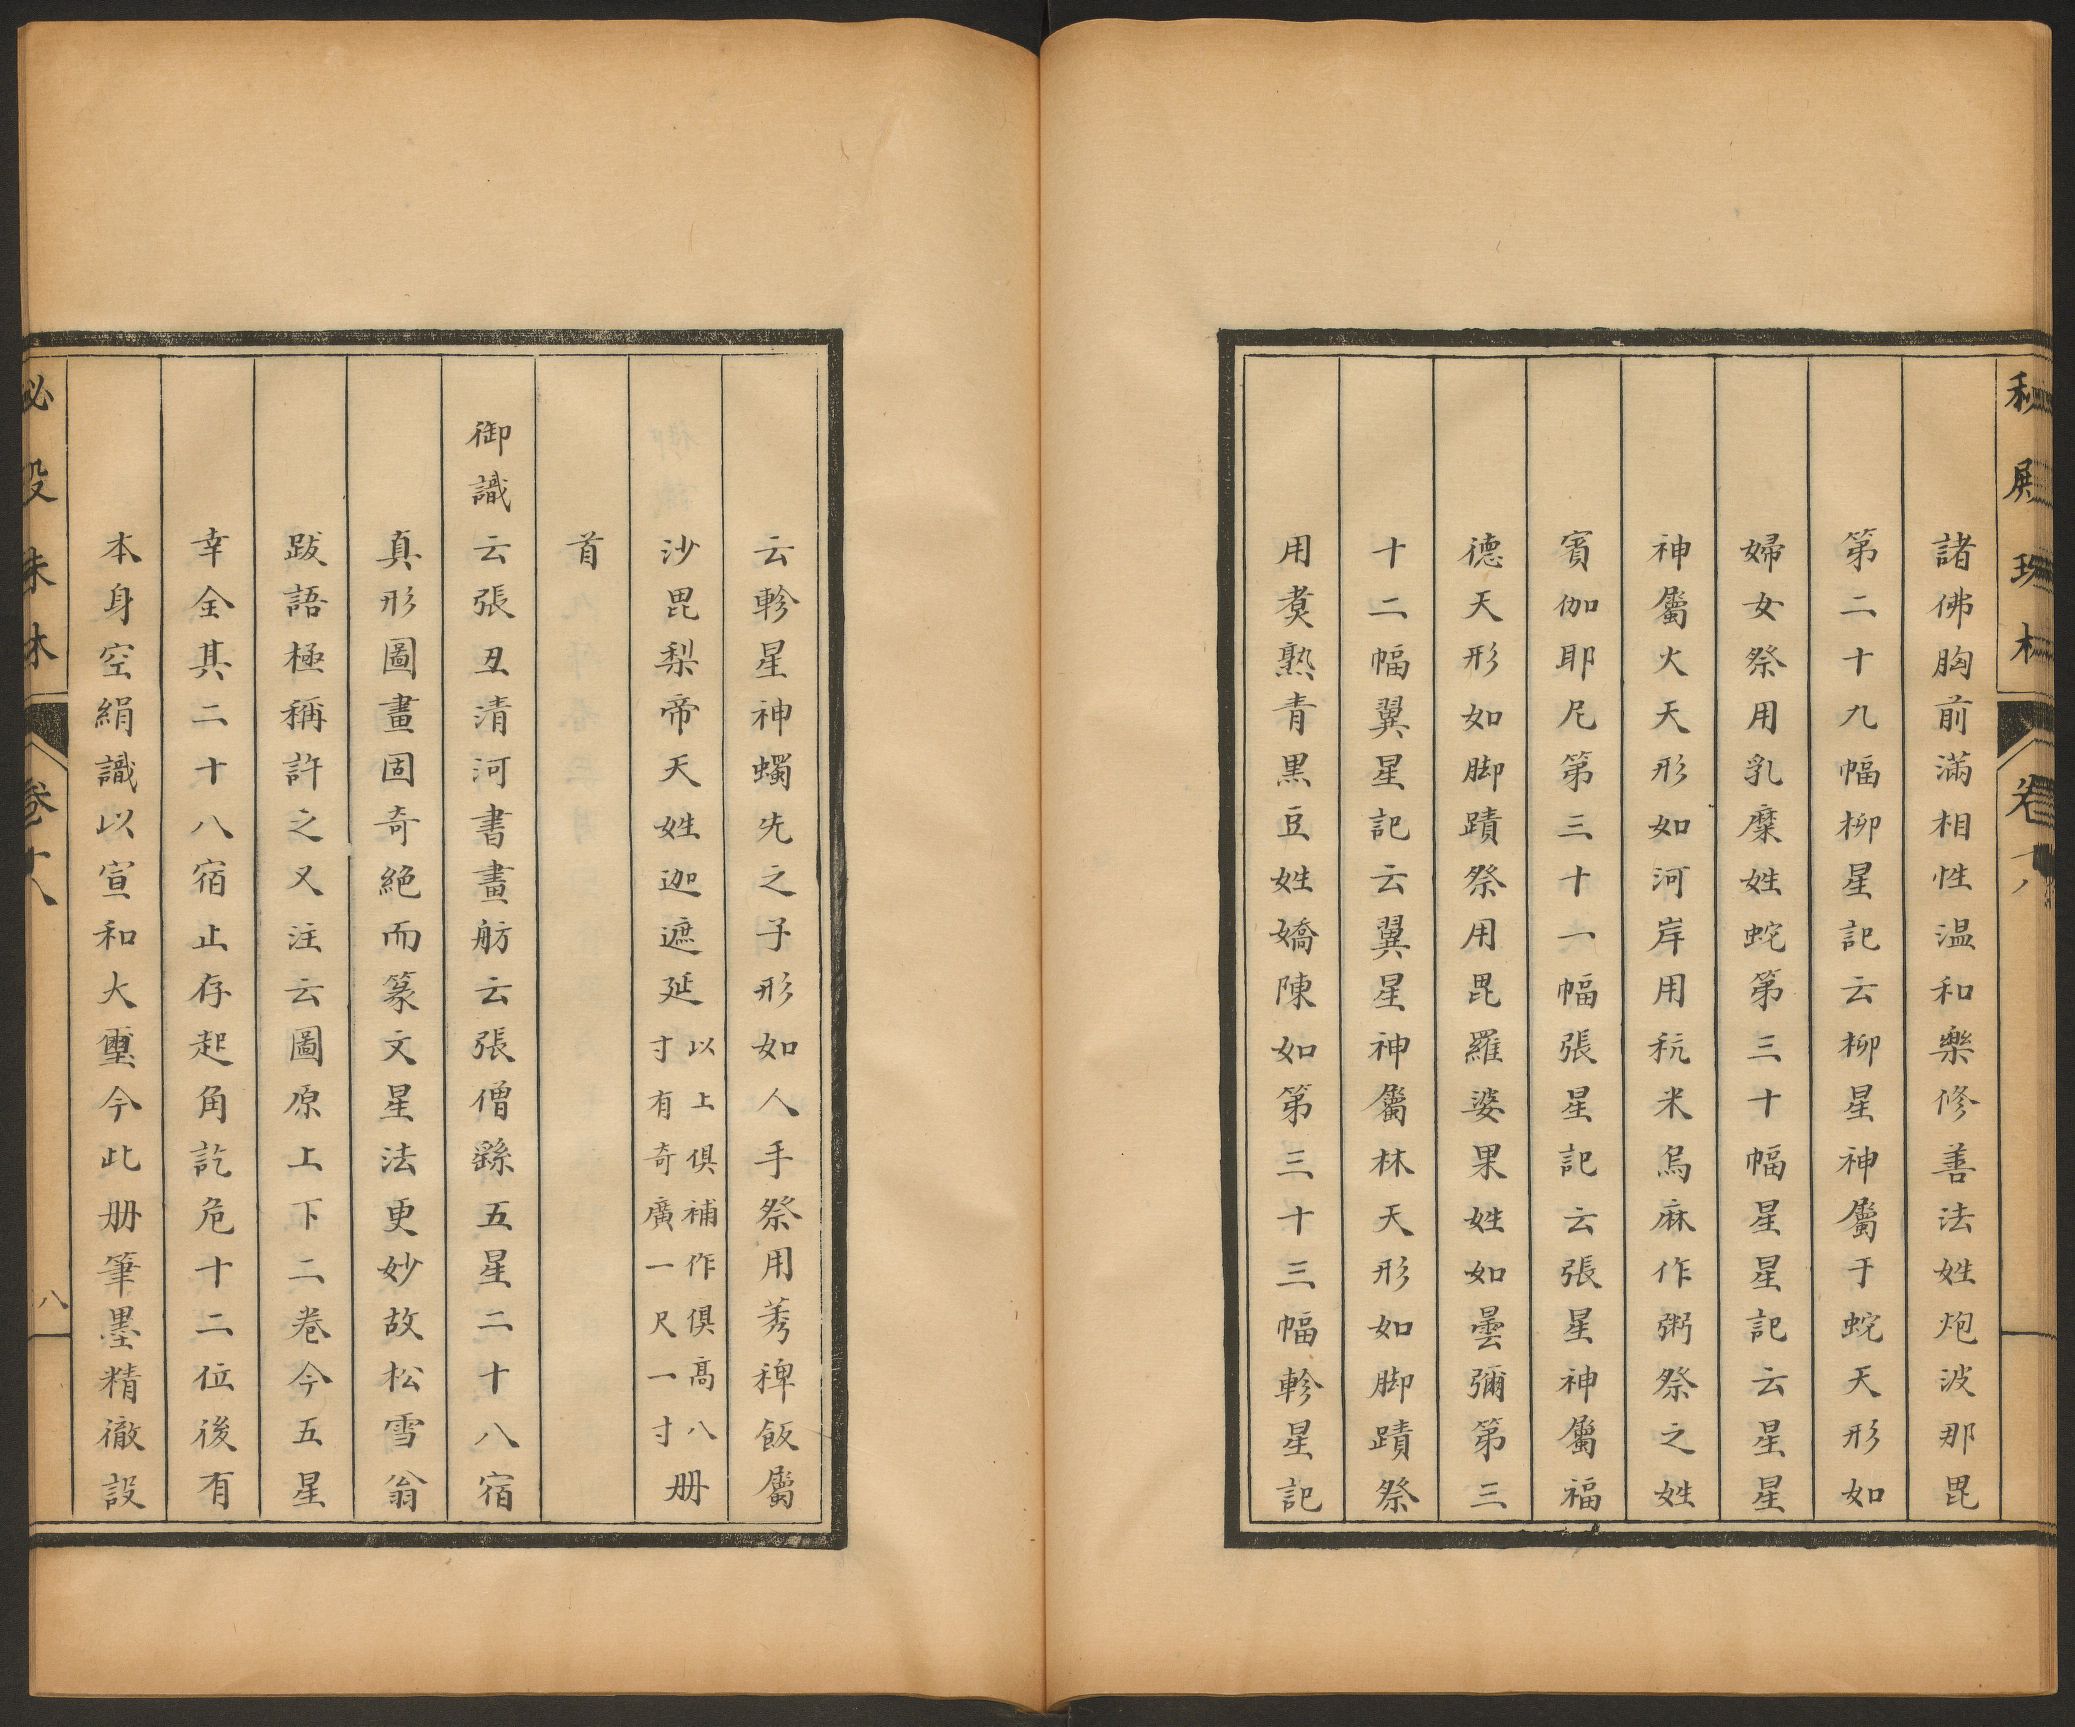 諸佛胸前滿相性温和樂修善法姓炮波那毘
第二十九幅柳星記云柳星神屬于蛇天形如
婦女祭用乳糜姓蛇第三十幅星星記云星星
神屬火天形如河岸用秔米烏麻作粥祭之姓
賓伽耶尼第三十一幅張星記云張星神屬福
德天形如脚蹟祭用毘羅婆果姓如曇彌第三
十二幅翼星記云翼星神屬林天形如脚蹟祭
用煑熟青黑豆姓嬌陳如第三十三幅軫星記
云軫星神蠋先之子形如人手祭用莠稗飯屬
沙毘梨帝天姓迦遮延以上俱補作俱高八寸有奇廣一尺一寸册
首
御識云張丑清河書畫舫云張僧繇五星二十八宿
真形圖畫固奇絶而篆文星法更妙故松雪翁
跋語極稱許之又注云圖原上下二卷今五星
幸全其二十八宿止存起角訖危十二位後有
本身空絹識以宣和大璽今此册筆墨精徹設
卷十八
八